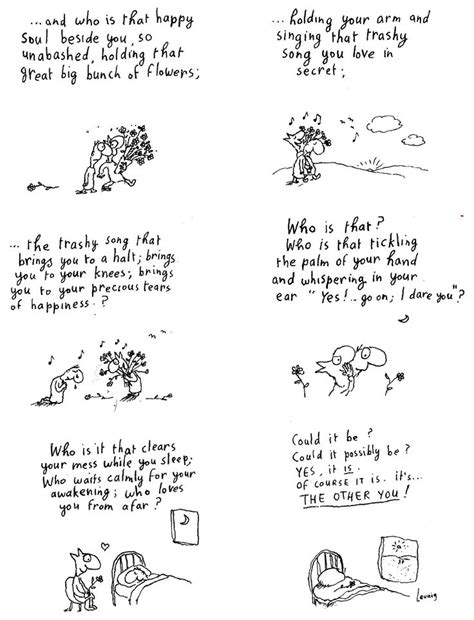 ...and who is that happy
soul beside you, so
unabashed, holding that
great big bunch of flowers;
...holding your arm and
singing that trashy
song you love in
secret;
... the trashy song that
brings you to a halt; brings
you to your knees; brings
you to your precious tears
of happiness.?
Who is that?
Who is that tickling
the palm of your hand
and whispering in your
ear "Yes!.. go on; I dare you"?
Who is it that clears
your mess while you sleep;
Who waits calmly for your
awakening; who loves
you from afar?
Could it be?
Could it possibly be?
YES, it IS.
OF COURSE IT is. it's...
THE OTHER YOU!
Leunig